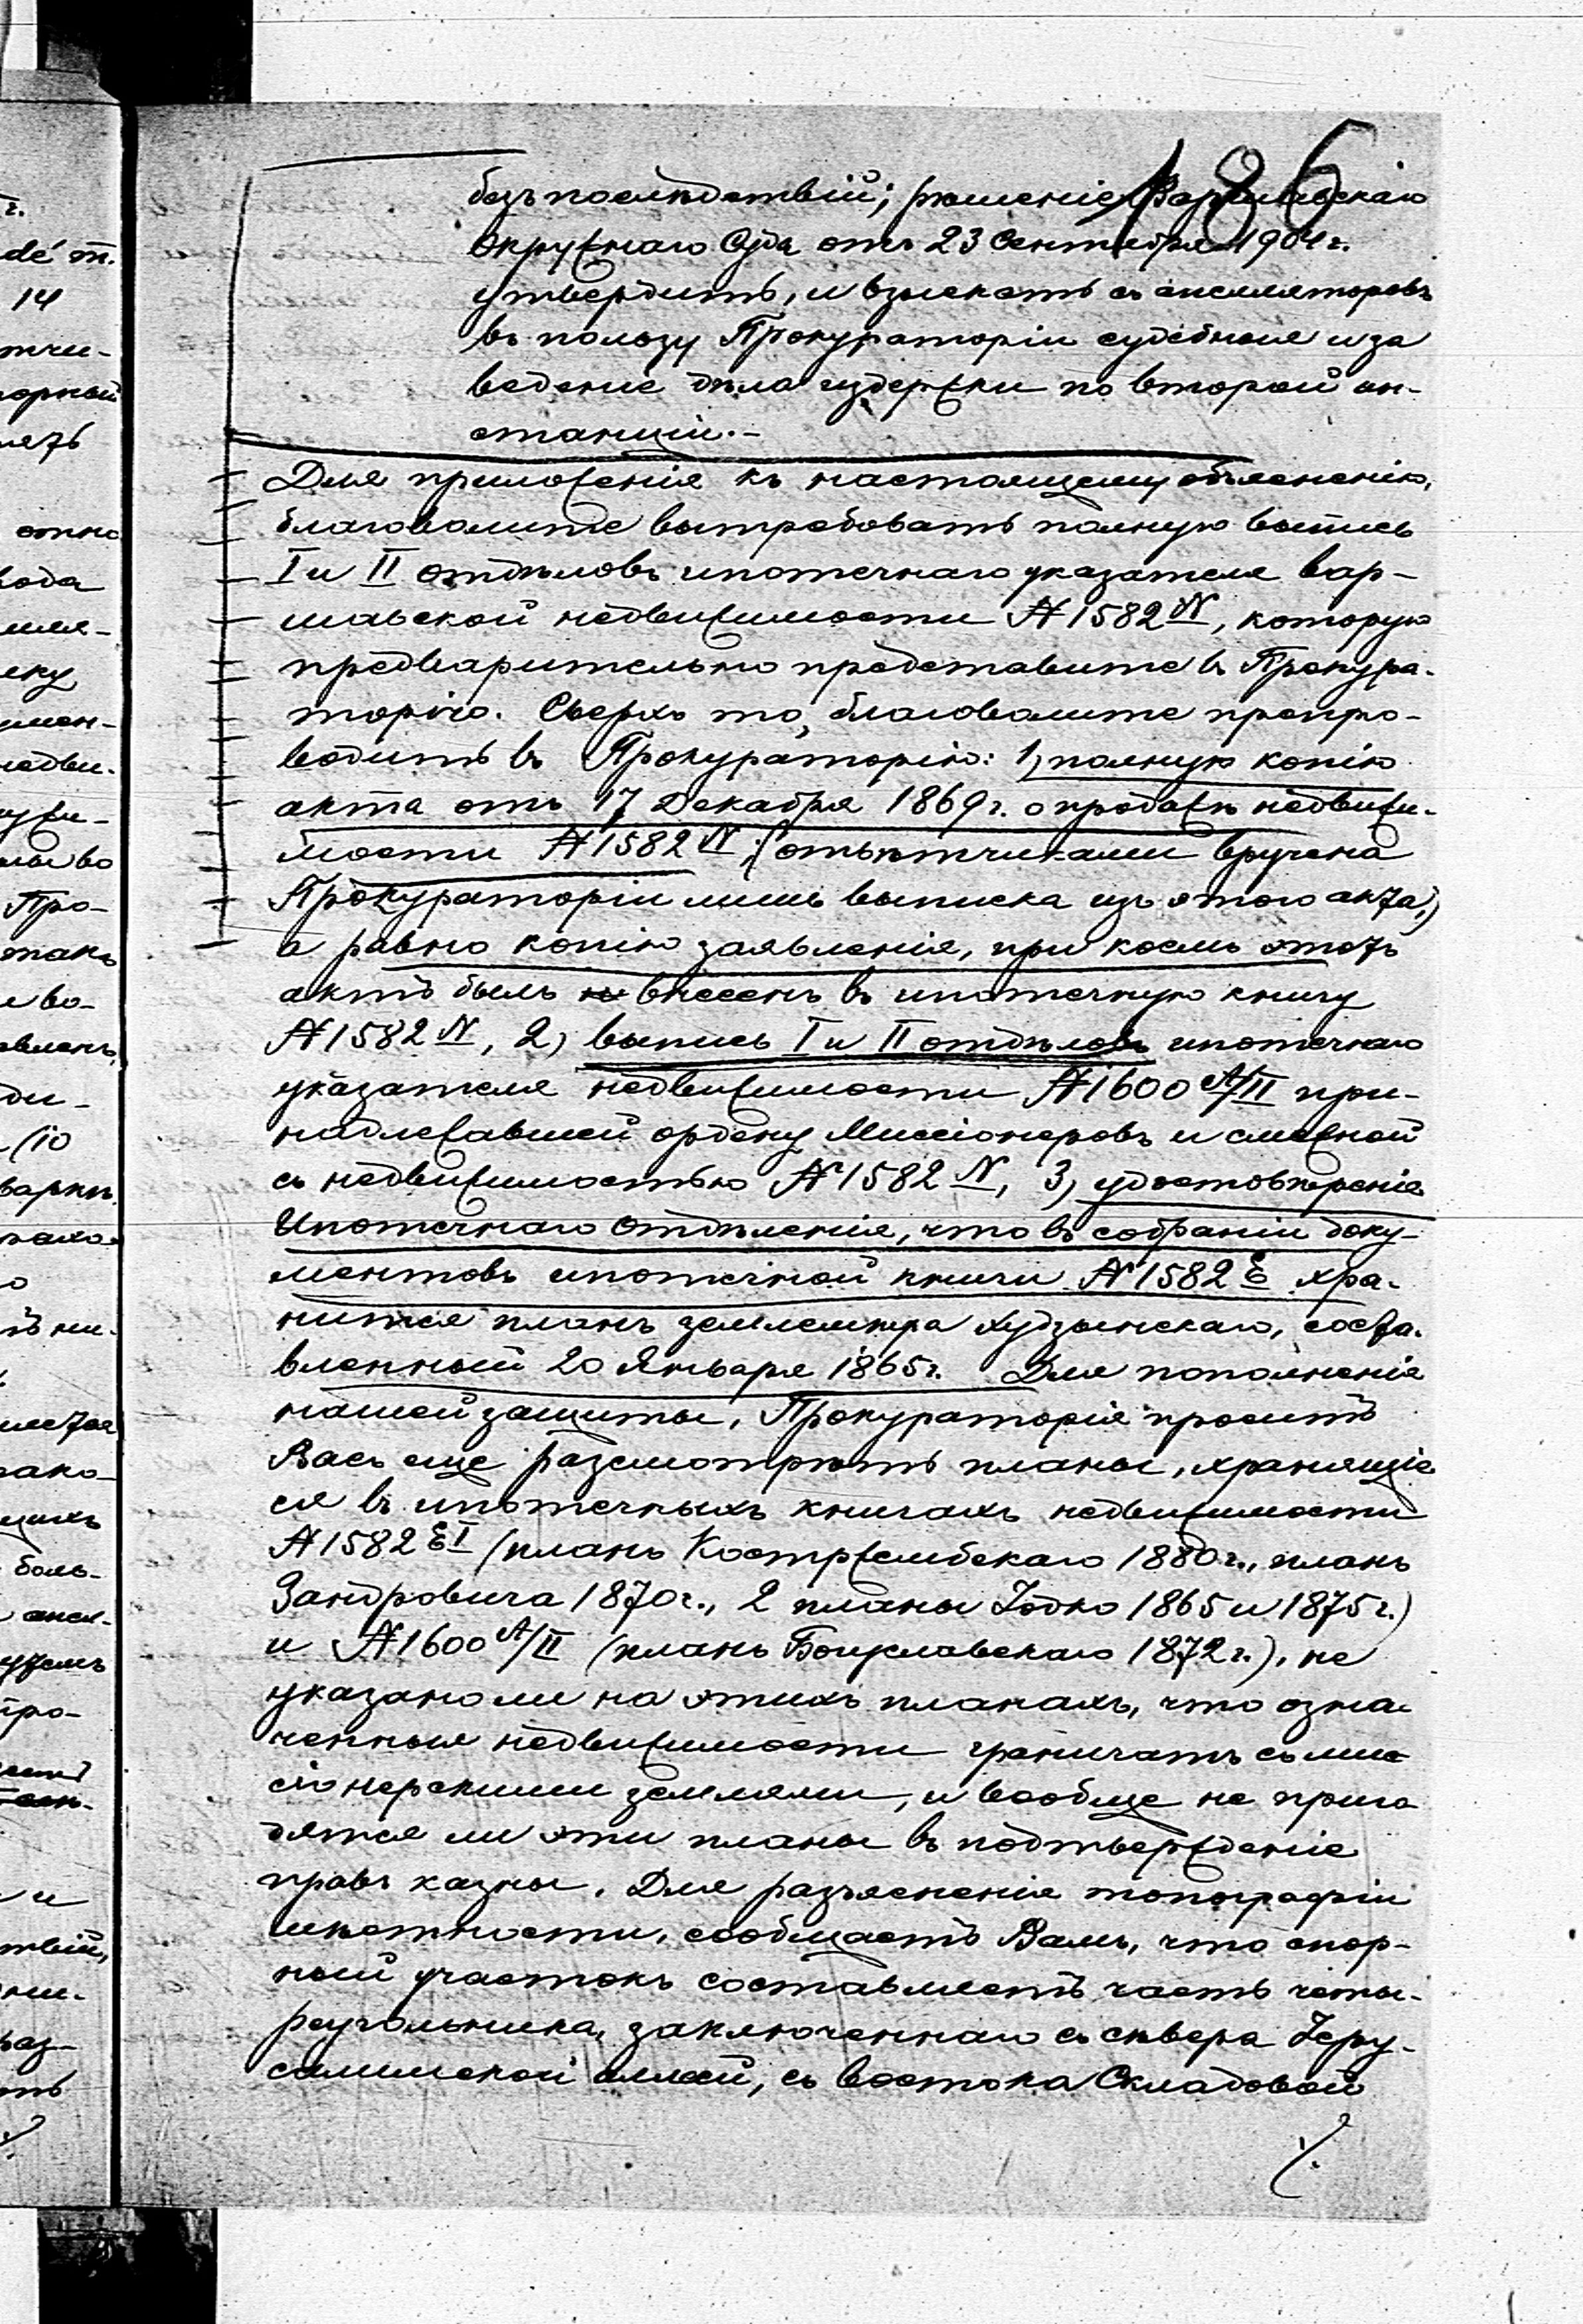 186
безъ послѣдствій; рѣшеніе Варшавскаго
Окружнаго Суда отъ 23 Сентября 1904 г.
утвердить, и взыскать съ апелляторовъ
въ пользу Прокураторіи судебныя и за
веденіе дѣла издержки по второй ин-
станціи.-
Для приложенія къ настоящему объясненію,
благоволите вытребовать полную выпись
I и II отдѣловъ ипотечнаго указателя вар-
шавской недвижимости № 1582 N, которую
предварительно представите въ Прокура-
торію. Сверхъ то, благоволите препро-
водить въ Прокураторію: 1) полную копію
акта отъ 17 Декабря 1869 г. о продажѣ недвижи-
мости № 1582 N; (отвѣтчиками вручена
Прокураторіи лишь выписка изъ этого акта,)
а равно копію заявленія, при коемъ этотъ
актъ былъ внесенъ въ ипотечную книгу
№ 1582 N, 2) выпись I и II отдѣловъ ипотечнаго
указателя недвижимости № 1600 A/II при-
надлежавшей ордену Миссіонеровъ и смежной
съ недвижимостью № 1582 N, 3) удостовѣреніе
Ипотечнаго Отдѣленія, что въ собраніи доку-
ментовъ ипотечной книги № 1582 E хра-
нится планъ землемѣра Худзынскаго, соста-
вленный 20 Января 1865 г. Для пополненія
нашей защиты, Прокураторія проситъ
Васъ еще разсмотрѣть планы, хранящіе
ся въ ипотечныхъ книгахъ недвижимости
№ 1582 E I (планъ Костржембскаго 1880 г., планъ
Зандровича 1870 г., 2 планы Іодко 1865 и 1875 г.)
и № 1600 A/II (планъ Богуславскаго 1872 г.), не
указано ли на этихъ планахъ, что озна-
ченныя недвижимости граничатъ съ мис
сіонерскими землями, и вообще не приго
дятся ли эти планы въ подтвержденіе
правъ казны. Для разъясненія топографіи
мѣстности, сообщаетъ Вамъ, что спор-
ный участокъ составляетъ часть четы-
реугольника, заключеннаго съ сѣвера Іеру-
салимской аллей, съ востока Складовой